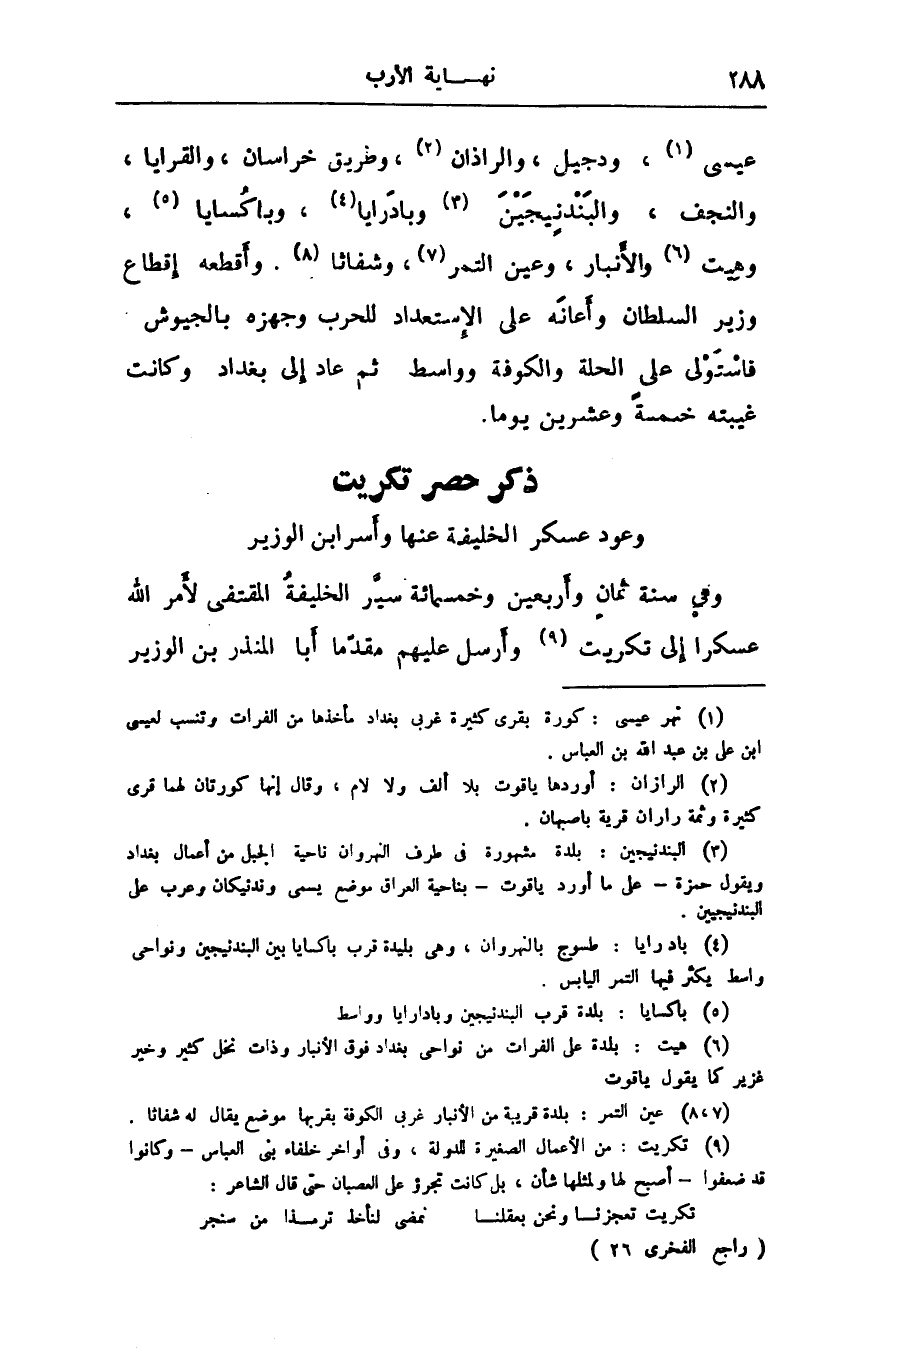 ٢٨٨ نهـــاية الأرب
عيسى (١) ، ودجيل ، والراذان (٢) ، وطريق خراسان ، والقرايا ،
والنجف ، والبَنْدنِيجَيْنَ (٣) وبادَرايا(٤) ، وباكُسايا (٥) ،
وهِيت (٦) والأَنبار ، وعين التمر(٧) ، وشفاثا (٨) . وأَقطعه إقطاع
وزير السلطان وأَعانَه على الإستعداد للحرب وجهزه بالجيوش
فاسْتَوْلى على الحلة والكوفة وواسط ثم عاد إلى بغداد وكانت
غيبته خمسةً وعشرين يوما.
ذكر حصر تكريت
وعود عسكر الخليفة عنها وأَسر ابن الوزير
وفي سنة ثمانٍ وأَربعين وخمسمائة سيَّر الخليفةُ المقتفى لأَمر الله
عسكرا إلى تكريت (٩) وأَرسل عليهم مقدّما أَبا المنذر بن الوزير
(١) نهر عيسى : كورة بقرى كثيرة غربى بغداد مأخذها من الفرات وتنسب لعيسى
ابن على بن عبد الله بن العباس .
(٢) الرازان : أوردها ياقوت بلا ألف ولا لام ، وقال إنها كورتان لهما قرى
كثيرة وثمة راران قرية باصبهان .
(٣) البندنيجين : بلدة مشهورة فى طرف النهروان ناحية الجبل من أعمال بغداد
ويقول حمزة – على ما أورد ياقوت – بناحية العراق موضع يسمى وندنيكان وعرب على
البندنيجيين .
(٤) بادرايا : طسوج بالنهروان ، وهى بليدة قرب باكسايا بين البندنيجين ونواحى
واسط يكثر فيها التمر اليابس .
(٥) باكسايا : بلدة قرب البندنيجين وبادارايا وواسط
(٦) هيت : بلدة على الفرات من نواحى بغداد فوق الأنبار وذات نخل كثير وخير
غزير كما يقول ياقوت
(٧،٨) عين التمر : بلدة قريبة من الأنبار غربى الكوفة بقربها موضع يقال له شفاثا .
(٩) تكريت : من الأعمال الصغيرة للدولة ، وفى أواخر خلفاء بنى العباس – وكانوا
قد ضعفوا – أصبح لها ولمثلها شأن ، بل كانت تجرؤ على العصيان حتى قال الشاعر :
تكريت تعجزنـــا ونحن بعقلنـــا نمضى لنأخذ ترمـــذا من سنجر
( راجع الفخرى ٢٦ )